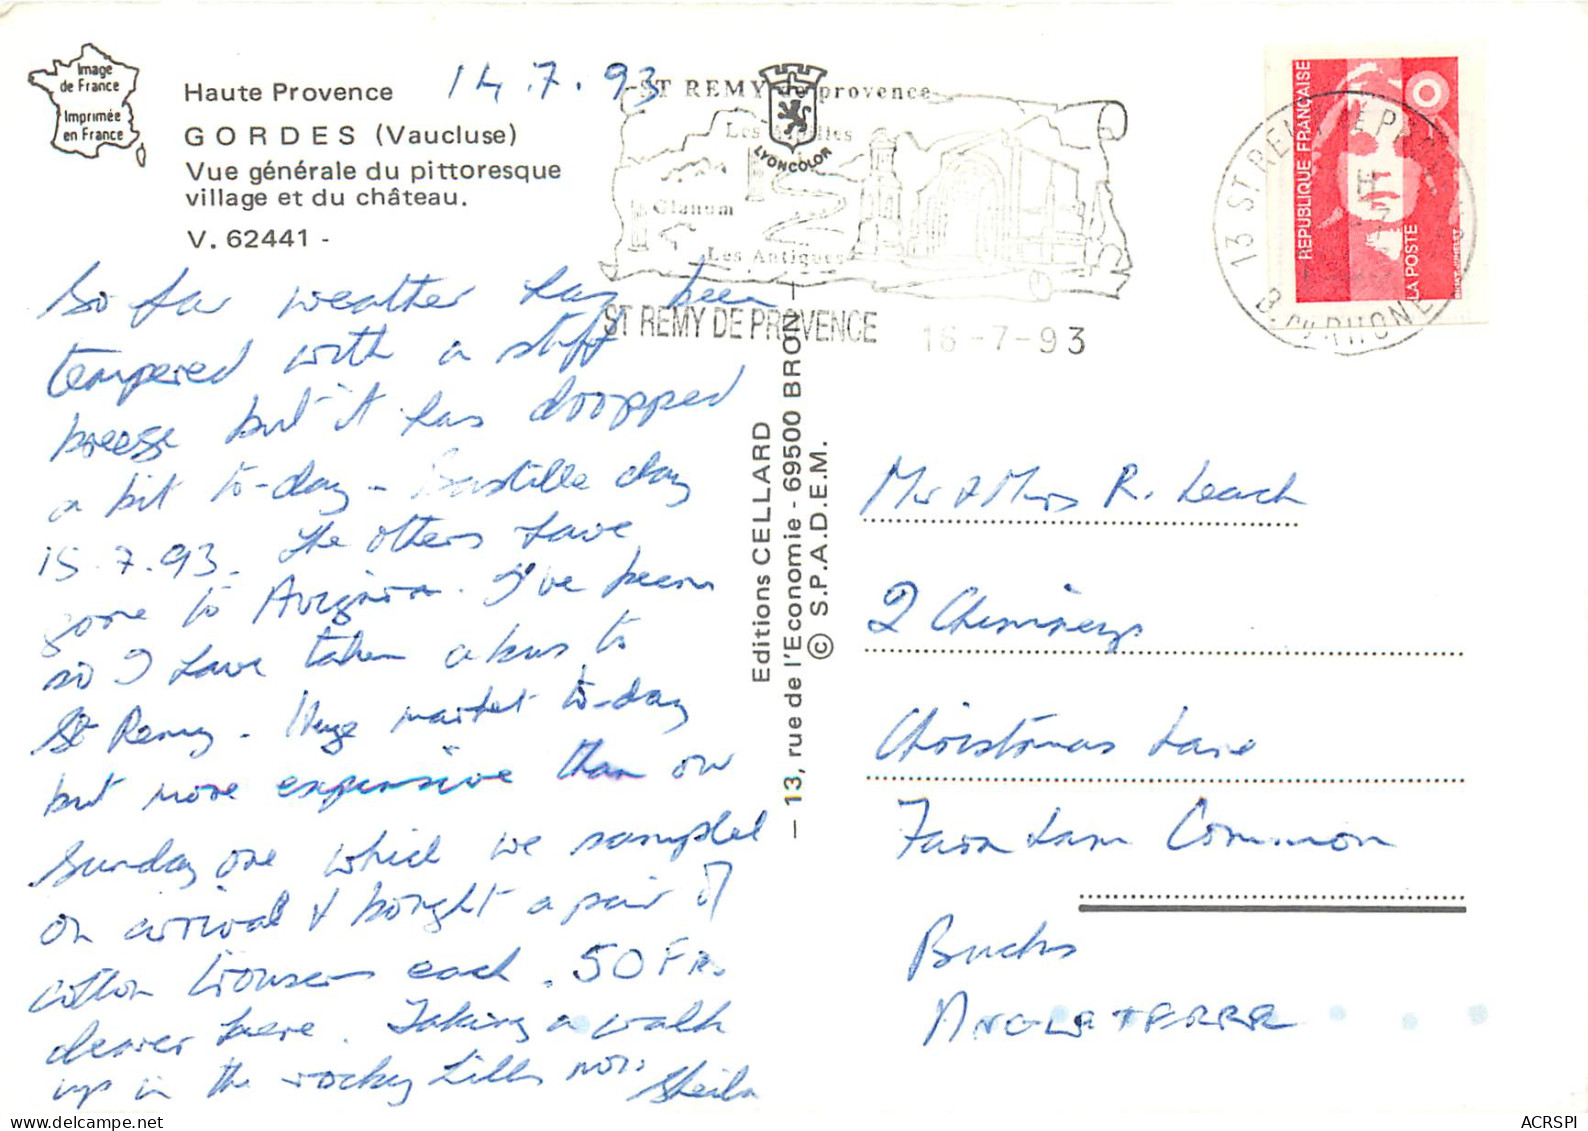 Image
de France
Imprimée
en France
Haute Provence
GORDES (Vaucluse)
Vue générale du pittoresque
village et du château.
V. 62441 -
14.7.93
ST REMY de provence
Les Alpilles
LYONCOLOR
Glanum
Les Antiques
ST REMY DE PROVENCE 16-7-93
13 ST REMY DE PROVENCE
B. DU RHONE
REPUBLIQUE FRANÇAISE
LA POSTE
So far weather has been
tempered with a stiff
breeze but it has dropped
a bit to-day - Bastille day
15.7.93. The others have
gone to Avignon. I've been
so I have taken a bus to
St Remy. Huge market to-day
but more expensive than our
Sunday one which we sampled
on arrival & bought a pair of
cotton trousers each. 50 Frs.
dearer here. Taking a walk
up in the rocky hills now.
Sheila
Editions CELLARD
— 13, rue de l'Economie - 69500 BRON —
© S.P.A.D.E.M.
Mr & Mrs R. Leach
2 Chimneys
Christmas Lane
Farnham Common
Bucks
ANGLETERRE
ACRSPI